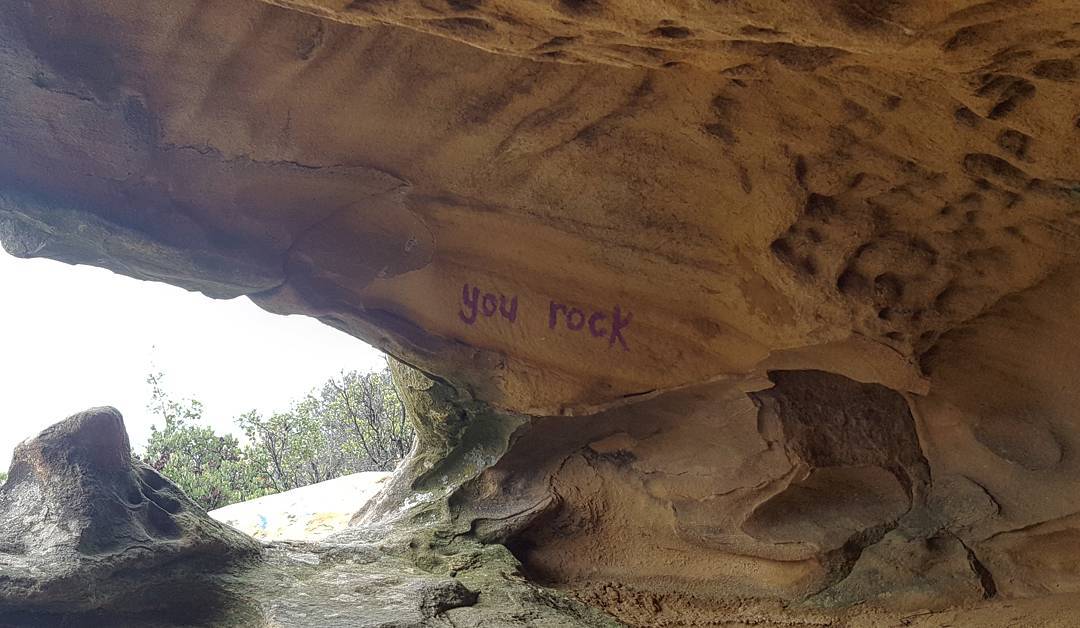 you rock